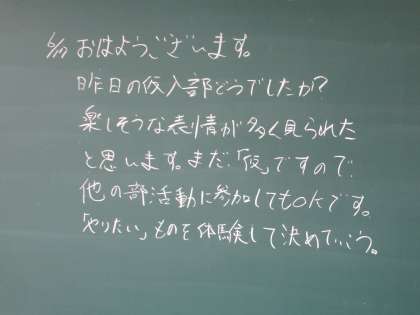 おはようございます。
昨日の仮入部どうでしたか?
楽しそうな表情が多く見られた
と思います。まだ、「仮」ですので、
他の部活動に参加してもOKです。
「やりたい」ものを体験して決めていこう。